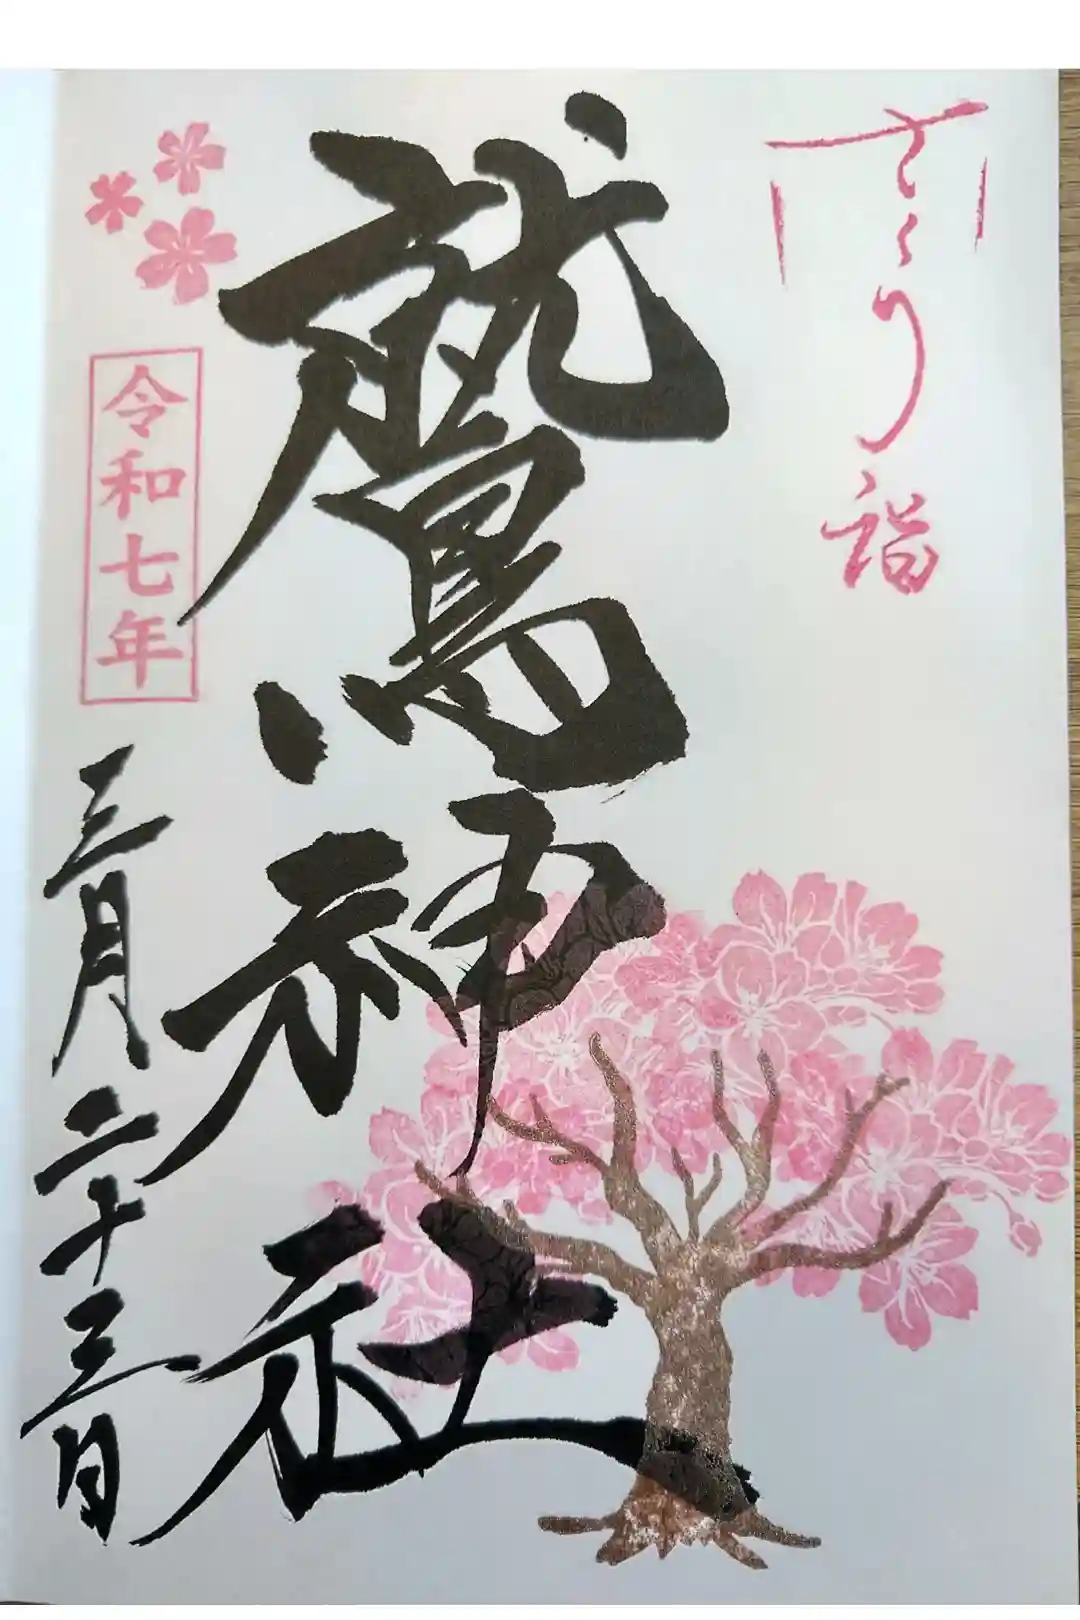 さくり詣
鷲神社
令和七年
三月二十三日